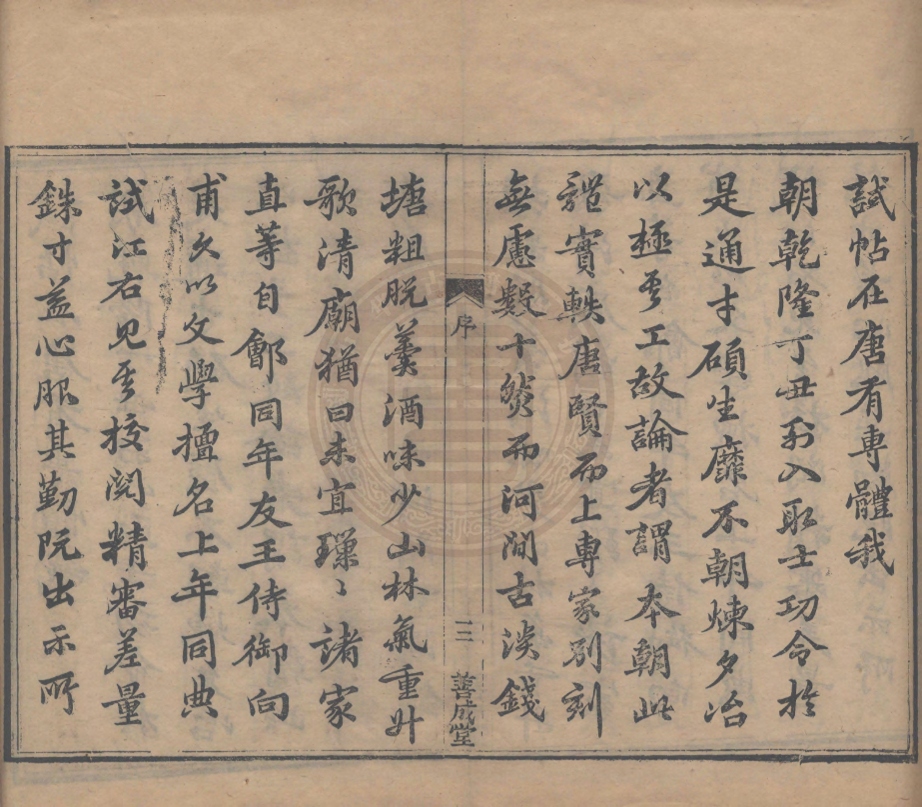 試帖在唐有專體我
朝乾隆丁丑列入取士功令於
是通才碩生靡不朝煉夕冶
以極其工故論者謂本朝此
體實軼唐賢而上專家別刻
無慮數十然而河間古淡錢
序 三 善成堂
塘粗脫羹酒味少山林氣重升
歌清廟猶曰未宜璅〻諸家
直等自鄶同年友王侍御向
甫久以文學擅名上年同典
試江右見其挍閱精審差量
銖寸益心服其勤既出示所